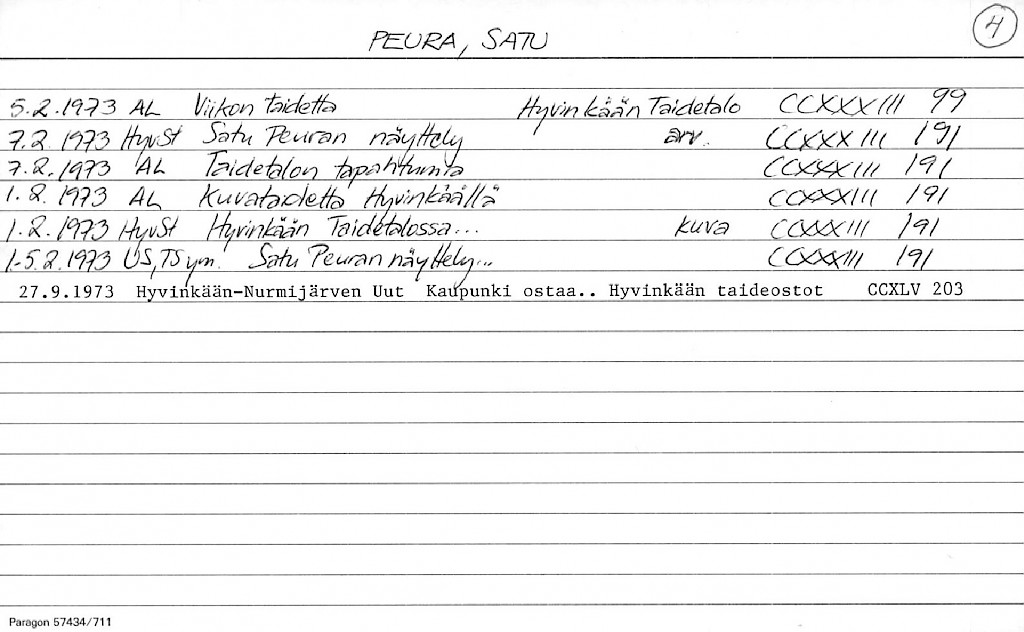 4
PEURA, SATU
5.2.1973 AL Viikon taidetta Hyvinkään Taidetalo CCXXXIII 99
7.2.1973 HyvSt Satu Peuran näyttely arv. CCXXXIII 191
7.2.1973 AL Taidetalon tapahtumia CCXXXIII 191
1.2.1973 AL Kuvataidetta Hyvinkäällä CCXXXIII 191
1.2.1973 HyvSt Hyvinkään Taidetalossa... kuva CCXXXIII 191
1-5.2.1973 US, TS ym. Satu Peuran näyttely... CCXXXIII 191
27.9.1973 Hyvinkään-Nurmijärven Uut Kaupunki ostaa.. Hyvinkään taideostot CCXLV 203
Paragon 57434/711